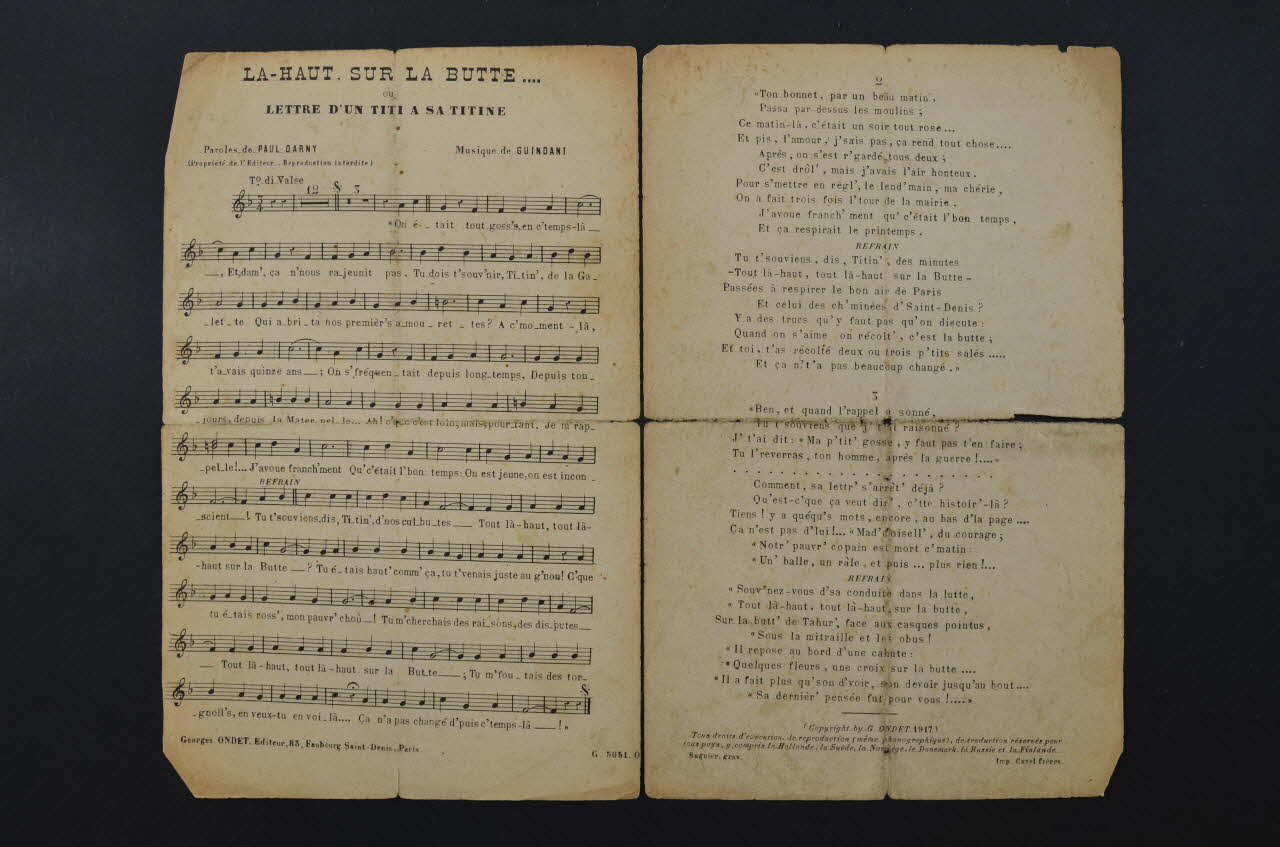 LA-HAUT. SUR LA BUTTE....
ou
LETTRE D'UN TITI A SA TITINE
Paroles de PAUL DARNY
Musique de GUINDANI
(Propriété de l'Editeur._ Reproduction interdite)
Tº di Valse
12 3
«On é_ tait tout goss's, en c'temps-là _
_, Et, dam', ça n'nous ra_jeunit pas. Tu dois t'souv'nir, Ti_tin', de la Ga_
_let_te Qui a_bri_ta nos premièr's a_mou_ret_tes? A c'mo_ment_là,
t'a_vais quinze ans __; On s'fréquen_tait depuis long_temps, Depuis tou_
_jours, depuis la Mater_nel_le... Ah! c'que c'est loin; mais, pour_tant, Je m'rap_
_pel_le!... J'avoue franch'ment Qu'c'était l'bon temps: On est jeune, on est incon_
REFRAIN
_scient __! Tu t'souviens, dis, Ti_tin', d'nos cul_bu_tes __ Tout là-haut, tout là-
-haut sur la Butte __? Tu é_tais haut' comm' ça, tu t'venais juste au g'nou! C'que
tu é_tais ross', mon pauvr' choù _! Tu m'cherchais des rai_sons, des dis_putes __
__ Tout là-haut, tout là-haut sur la But_te __; Tu m'fou_tais des tor_
_gnoll's, en veux-tu en voi_là.... Ça n'a pas changé d'puis c'temps-là __! »
Georges ONDET, Editeur, 83, Faubourg Saint-Denis, Paris
G. 5051. O
2
«Ton bonnet, par un beau matin,
Passa par dessus les moulins;
Ce matin-là, c'était un soir tout rose...
Et pis, l'amour, j'sais pas, ça rend tout chose....
Après, on s'est r'gardé tous deux;
C'est drôl', mais j'avais l'air honteux.
Pour s'mettre en règl', le lend'main, ma chérie,
On a fait trois fois l'tour de la mairie.
J'avoue franch'ment qu'c'était l'bon temps,
Et ça respirait le printemps.
REFRAIN
Tu t'souviens, dis, Titin', des minutes
-Tout là-haut, tout là-haut sur la Butte-
Passées à respirer le bon air de Paris
Et celui des ch'minées d'Saint-Denis?
Y a des trucs qu'y faut pas qu'on discute:
Quand on s'aime on récolt', c'est la butte;
Et toi, t'as récolté deux ou trois p'tits salés.....
Et ça n't'a pas beaucoup changé.»
3
«Ben, et quand l'rappel a sonné,
Tu t'souviens que j't'ai raisonné?
J't'ai dit: «Ma p'tit' gosse, y faut pas t'en faire;
Tu l'reverras, ton homme, après la guerre!....»
. . . . . . . . . . . . . . . . . .
Comment, sa lettr' s'arrêt' déjà?
Qu'est-c'que ça veut dir', c'tte histoir'-là?
Tiens! y a quéqu's mots, encore, au bas d'la page....
Ça n'est pas d'lui!... «Mad'moisell', du courage;
«Notr' pauvr' copain est mort c'matin:
«Un' balle, un râle, et puis... plus rien!...
REFRAIN
«Souv'nez-vous d'sa conduite dans la lutte,
«Tout là-haut, tout là-haut, sur la butte,
Sur la butt' de Tahur', face aux casques pointus,
«Sous la mitraille et les obus!
«Il repose au bord d'une cahute:
«Quelques fleurs, une croix sur la butte....
«Il a fait plus qu'son d'voir, son devoir jusqu'au bout....
«Sa dernièr' pensée fut pour vous!....»
(Copyright by G. ONDET 1917)
Tous droits d'exécution, de reproduction (même phonographique), de traduction réservés pour
tous pays, y compris la Hollande, la Suède, la Norvège, le Danemark, la Russie et la Finlande.
Saguier, grav.
Imp. Cavel frères.